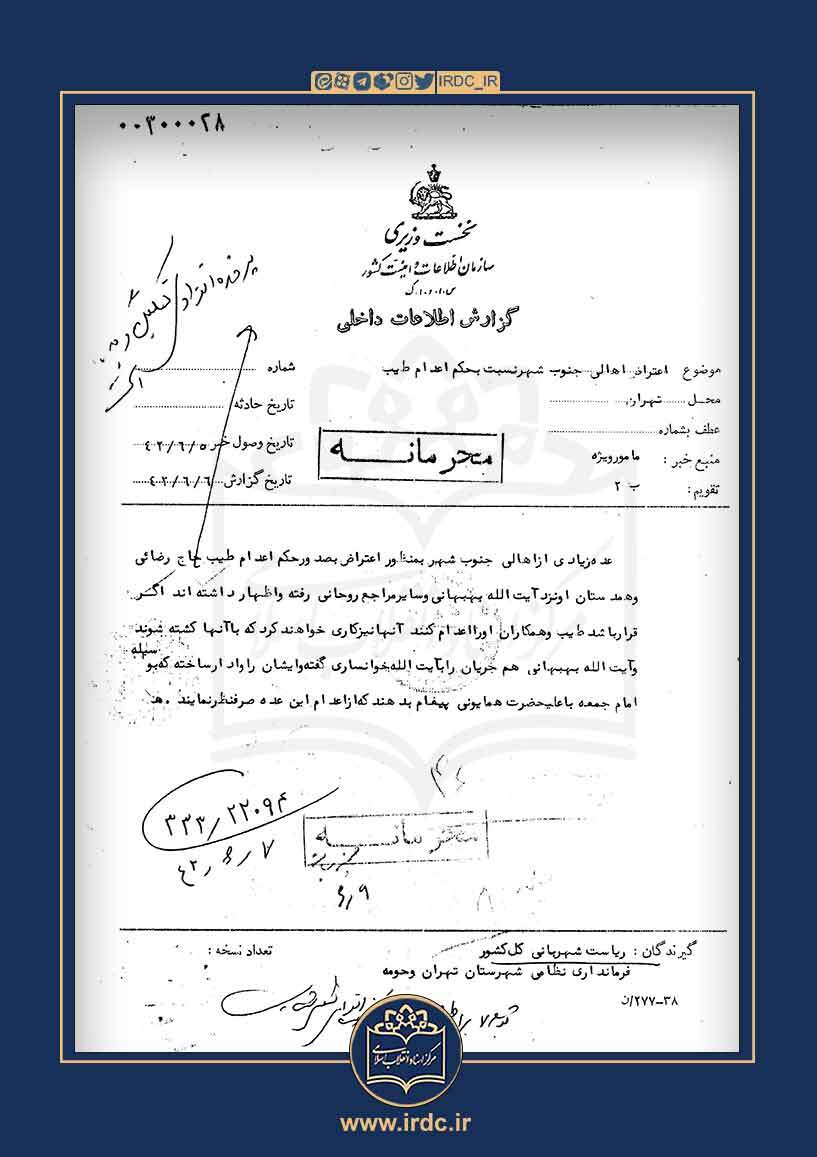 IRDC_IR
۰۰۳۰۰۰۲۸
نخست وزیری
سازمان اطلاعات و امنیت کشور
س.ا.و.ا.ک
گزارش اطلاعات داخلی
موضوع اعتراض اهالی جنوب شهر نسبت بحکم اعدام طیب
شماره
محل تهران
تاریخ حادثه
عطف بشماره
تاریخ وصول خبر ۴۲/۶/۵
منبع خبر : مامورویژه
تاریخ گزارش ۴۲/۶/۶
تقویم : ب ۲
محرمانه
عده زیادی از اهالی جنوب شهر بمنظور اعتراض بصدور حکم اعدام طیب حاج رضائی
وهمدستان اونزد آیت الله بهبهانی وسایر مراجع روحانی رفته واظهار داشته اند اگر
قرار باشد طیب وهمکاران اورا اعدام کنند آنها نیز کاری خواهند کرد که باآنها کشته شوند
وآیت الله بهبهانی هم جریان رابآیت الله خوانساری گفته وایشان راوادار ساخته که بوسیله
امام جمعه باعلیحضرت همایونی پیغام بدهند که ازاعدام این عده صرفنظر نمایند . هـ
۳۳۳/۲۲۰۹۴
۴۲/۶/۷
محرمانه
۶/۹
گیرندگان : ریاست شهربانی کل کشور
تعداد نسخه :
فرمانداری نظامی شهرستان تهران وحومه
۲۷۷-۳۸/ن
مرکز اسناد انقلاب اسلامی
www.irdc.ir